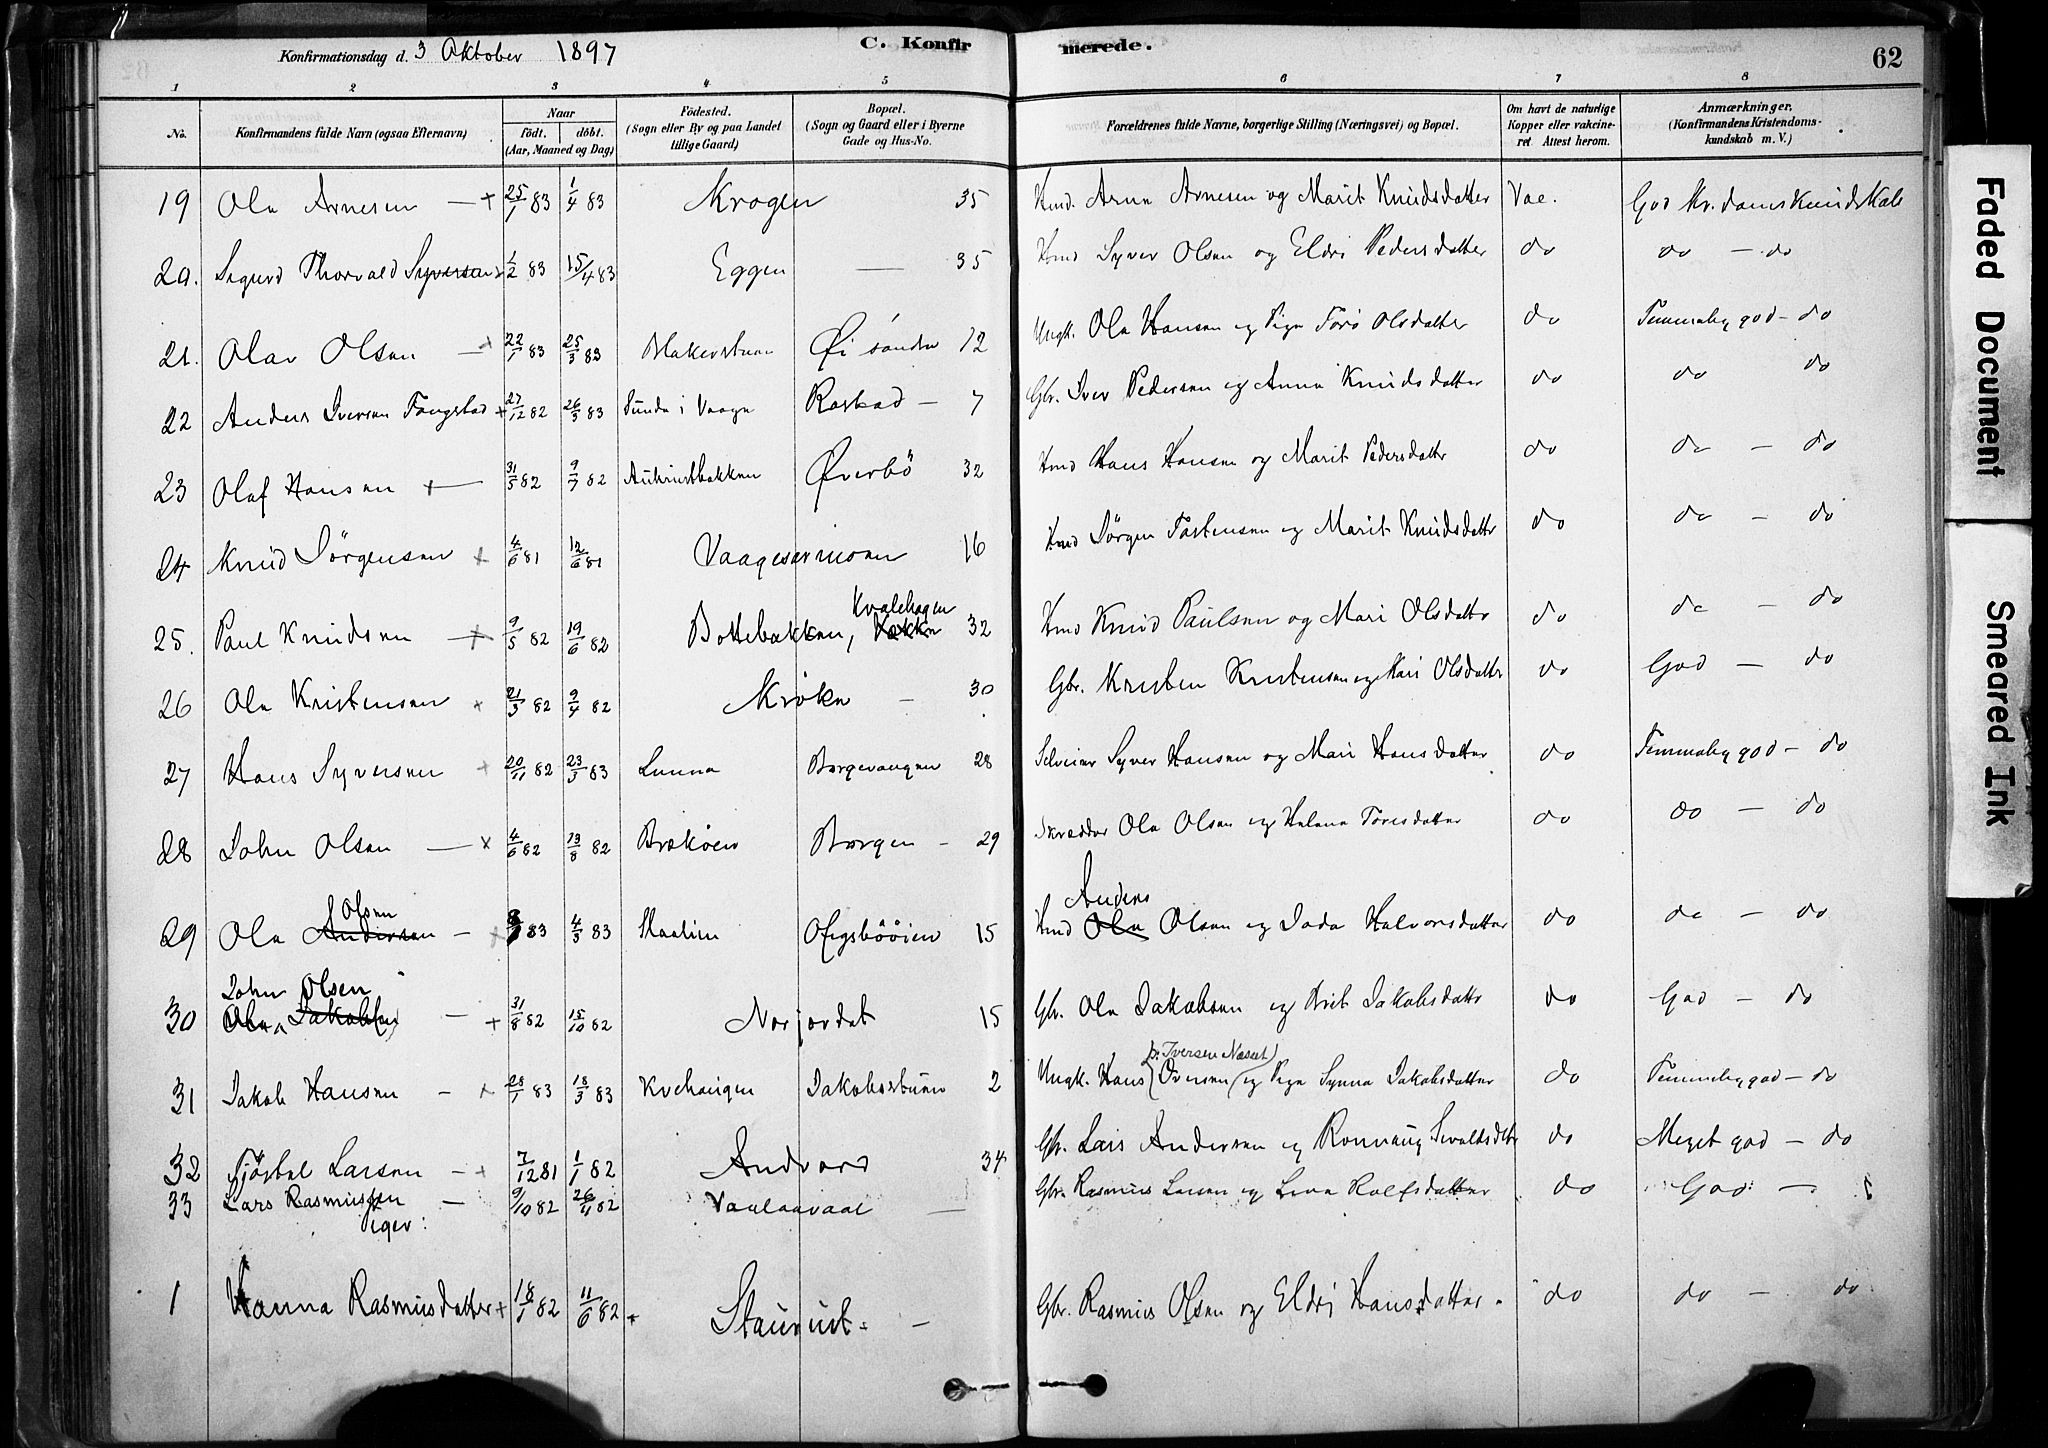 Konfirmationsdag d. 3 Oktober 1897
C. Konfirmerede.
62
1 2 3 4 5 6 7 8
No.
Konfirmandens fulde Navn (ogsaa Efternavn)
Naar
födt. döbt.
(Aar, Maaned og Dag)
Födested.
(Sogn eller By og paa Landet
tillige Gaard)
Bopæl.
(Sogn og Gaard eller i Byerne
Gade og Hus-No.
Forældrenes fulde Navne, borgerlige Stilling (Næringsvei) og Bopæl.
Om havt de naturlige
Kopper eller vakcine-
ret Attest herom.
Anmærkninger.
(Konfirmandens Kristendoms-
kundskab m. V.)
19 Ole Arnesen — + 25/1 83 1/4 83 Krogen 35 Hmd. Arne Arnesen og Marit Knudsdatter Vac. God Kr.domskundskab
20. Sigurd Thorvald Syversen 1/2 83 15/4 83 Eggen — 35 Hmd Syver Olsen og Eldri Pedersdatter do do - do
21. Olav Olsen — + 22/1 83 25/3 83 Øi søndre 12 Ungk. Ole Hansen og Pige Torø Olsdatter do Temmelig god - do
22 Anders Iversen Tangstad + 27/12 82 26/3 83 Sunde i Vaage 7 Gbr. Iver Pedersen og Anne Knudsdatter do do do
23 Olaf Hansen + — 31/5 82 9/7 82 Øverbö 32 Hmd Hans Hansen og Marit Pedersdatter do do - do
24 Knud Jörgensen + 4/6 81 12/6 81 16 Hmd Jörgen Tostensen og Marit Knudsdatter do do - do
Kvalehagen
25. Paul Knudsen + 9/5 82 19/6 82 Bottebakken, 32 Hmd Knud Paulsen og Mari Olsdatter do do - do
26 Ole Kristensen + 21/3 82 9/4 82 Krøke — 30 Gbr. Kristen Kristensen og Mari Olsdatter do God - do
27 Hans Syversen + 20/11 82 23/3 83 Lunna 28 Selveier Syver Hansen og Mari Hansdatter do Temmelig god - do
28 John Olsen — x 4/6 82 13/8 82 Borgen - 29 Skrædder Ole Olsen og Helene Toresdatter do do - do
Olsen Anders
29 Ole Andersen - + 83 4/3 83 15 Hmd Ole Olsen og Halvorsdatter do do - do
John Olsen
30 Ole Jakobsen — + 31/8 82 15/10 82 Norjordet 15 Gbr. Ole Jakobsen og Brit Jakobsdatter do God - do
Iversen Næset
31 Jakob Hansen - + 28/1 83 18/3 83 Jakobsstuen 2 Ungk. Hans og Pige Synne Jakobsdatter do Temmelig god - do
32 Larsen - + 7/12 81 1/1 82 Andvord 34 Gbr. Lars Andersen og Rønnaug do Meget god - do
33 Lars Rasmussen — 9/10 82 26/11 82 — Gbr. Rasmus Larsen og Lena Rolfsdatter do God —
Piger:
1 Hanna Rasmusdatter + 18/1 82 11/6 82 + Staurust — Gbr. Rasmus Olsen og Eldri Hansdatter do do - do
Faded Document
Smeared Ink